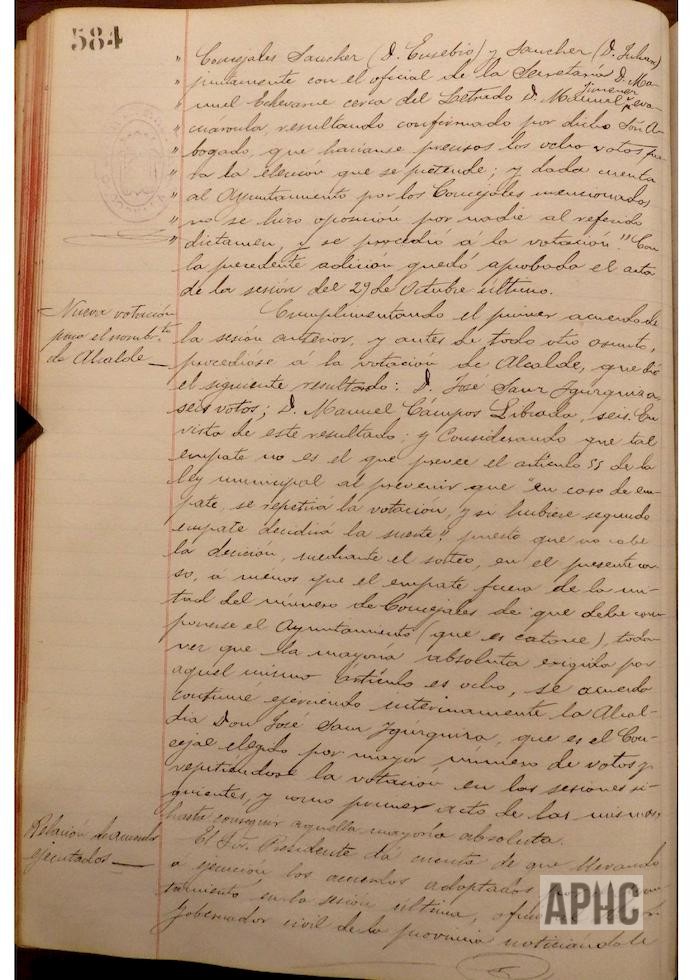 584
" Concejales Saucher (D. Eusebio) y Saucher (D. Julian)
" juntamente con el oficial de la Secretaria D. Ma-
" nuel Echevarne cerca del Letrado D. Manuel Jimenez
" resultando confirmado por dicho Sõr. A-
" bogado, que hacíanse precisos los ocho votos pa-
" ra la elección que se pretende; y dada cuenta
" al Ayuntamiento por los Concejales mencionados
" no se hizo oposición por nadie al referido
" dictamen, y se procedió á la votación." Con
la precedente adición quedó aprobada el acta
de la sesión del 29 de Octubre último.
Nueva votación
para el nombr.to
de Alcalde
Cumplimentando el primer acuerdo de
la sesión anterior, y antes de todo otro asunto,
procedióse á la votación de Alcalde, que dió
el siguiente resultado: D. José Sanz Igúrquiza,
seis votos; D. Manuel Campos Librada, seis. En
vista de este resultado; y Considerando que tal
empate no es el que prevee el artículo 55 de la
ley municipal al prevenir que "en caso de em-
pate, se repetirá la votación, y si hubiere segundo
empate decidirá la suerte", puesto que no cabe
la decisión, mediante el sorteo, en el presente ca-
so, á menos que el empate fuera de la mi-
tad del número de Concejales de que debe com-
ponerse el Ayuntamiento (que es catorce), toda
vez que la mayoría absoluta exigida por
aquel mismo artículo es ocho, se acuerda
continue ejerciendo interinamente la Alcal-
día Don José Sanz Igúrquiza, que es el Con-
cejal elegido por mayor número de votos, y
repitiendose la votación en las sesiones si-
guientes, y como primer acto de las mismas,
hasta conseguir aquella mayoría absoluta.
Relación de acuerdos
ejecutados
El Sr. Presidente dá cuenta de que llevando
á ejecución los acuerdos adoptados
tamiento en la sesión última,
Gobernador civil de la provincia noticiándole
APHC